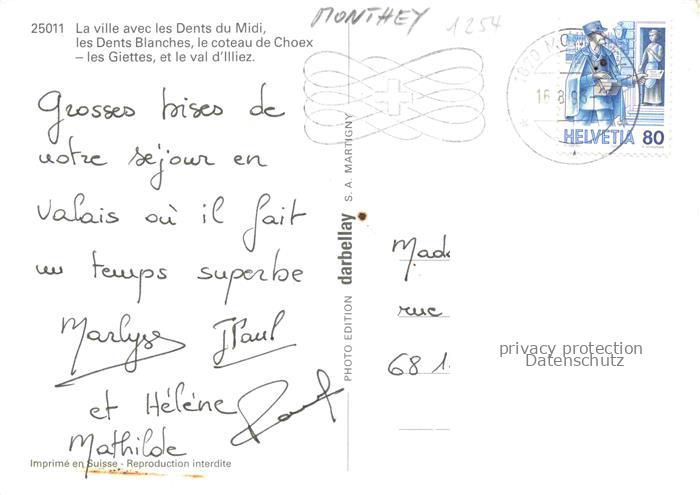 25011 La ville avec les Dents du Midi,
les Dents Blanches, le coteau de Choex
– les Giettes, et le val d'Illiez.
MONTHEY 1254
HELVETIA 80
Grosses bises de
notre séjour en
Valais où il fait
un temps superbe
Marlyse JPaul
et Hélène
Mathilde
Imprimé en Suisse - Reproduction interdite
PHOTO EDITION darbellay S. A. MARTIGNY
Mada
rue
68 1
privacy protection
Datenschutz